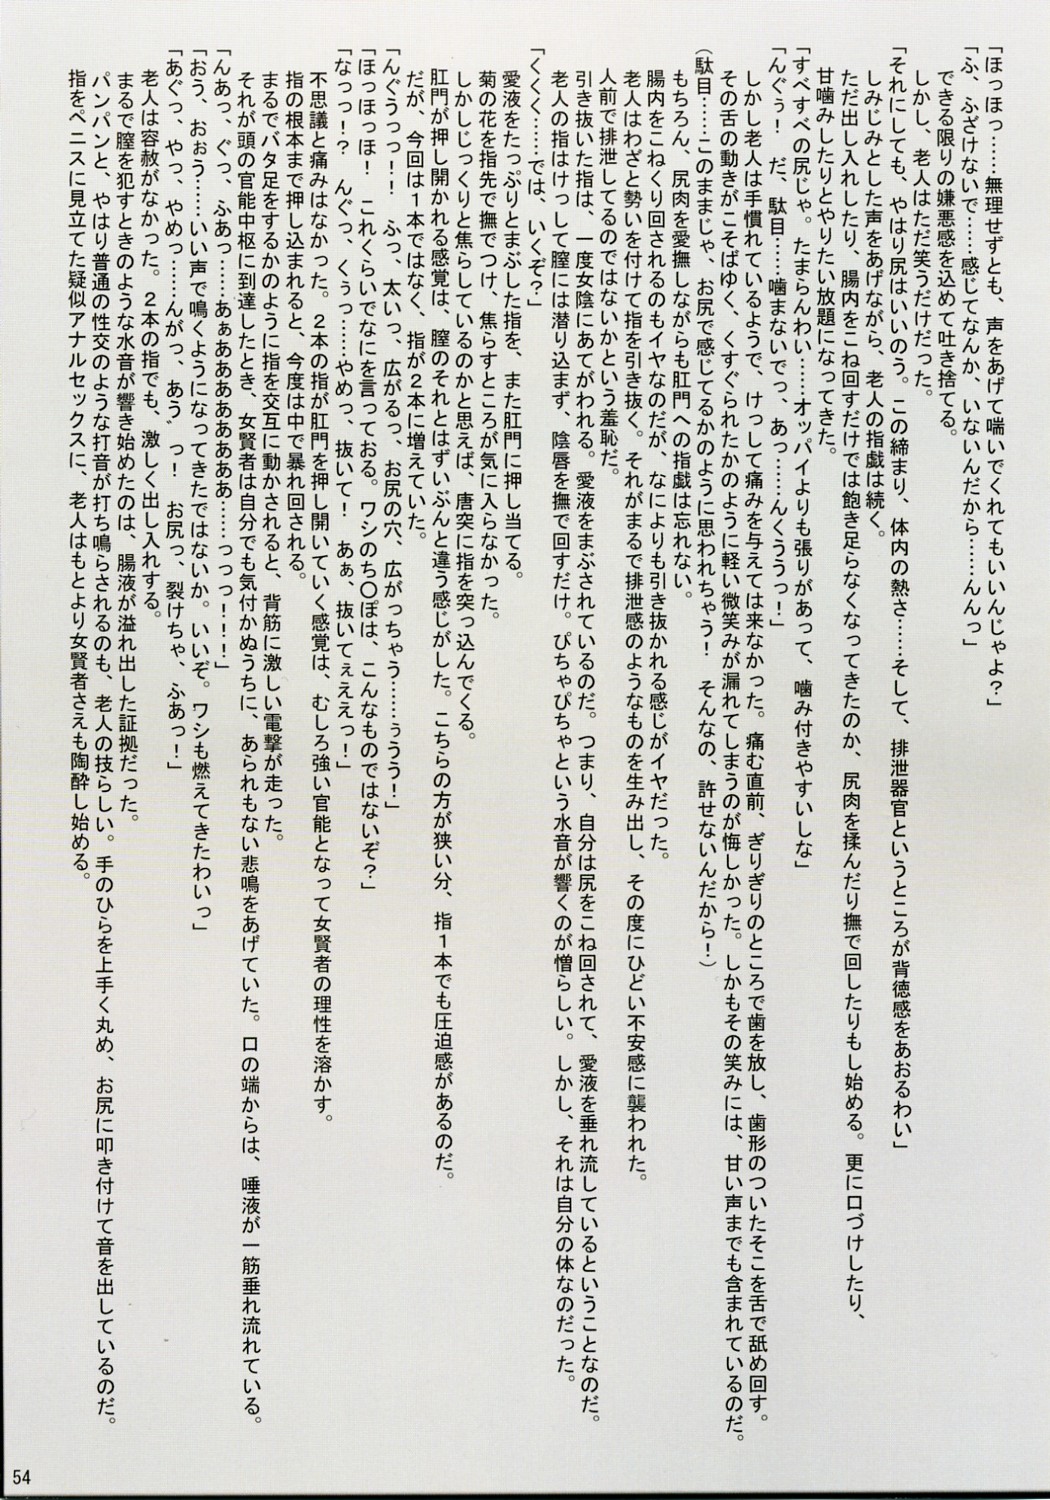 「ほっほっ……無理せずとも、声をあげて喘いでくれてもいいんじゃよ？」
「ふ、ふざけないで……感じてなんか、いないんだから……んんっ」
できる限りの嫌悪感を込めて吐き捨てる。
しかし、老人はただ笑うだけだった。
「それにしても、やはり尻はいいのう。この締まり、体内の熱さ……そして、排泄器官というところが背徳感をあおるわい」
しみじみとした声をあげながら、老人の指戯は続く。
ただ出し入れしたり、腸内をこね回すだけでは飽き足らなくなってきたのか、尻肉を揉んだり撫で回したりもし始める。更に口づけしたり、
甘噛みしたりとやりたい放題になってきた。
「すべすべの尻じゃ。たまらんわい……オッパイよりも張りがあって、噛み付きやすいしな」
「んぐぅ！　だ、駄目……噛まないでっ、あっ……んくううっ！」
しかし老人は手慣れているようで、けっして痛みを与えては来なかった。痛む直前、ぎりぎりのところで歯を放し、歯形のついたそこを舌で舐め回す。
その舌の動きがこそばゆく、くすぐられたかのように軽い微笑みが漏れてしまうのが悔しかった。しかもその笑みには、甘い声までも含まれているのだ。
（駄目……このままじゃ、お尻で感じてるかのように思われちゃう！　そんなの、許せないんだから！）
もちろん、尻肉を愛撫しながらも肛門への指戯は忘れない。
腸内をこねくり回されるのもイヤなのだが、なによりも引き抜かれる感じがイヤだった。
老人はわざと勢いを付けて指を引き抜く。それがまるで排泄感のようなものを生み出し、その度にひどい不安感に襲われた。
人前で排泄してるのではないかという羞恥だ。
引き抜いた指は、一度女陰にあてがわれる。愛液をまぶされているのだ。つまり、自分は尻をこね回されて、愛液を垂れ流しているということなのだ。
老人の指はけっして膣には潜り込まず、陰唇を撫で回すだけ。ぴちゃぴちゃという水音が響くのが憎らしい。しかし、それは自分の体なのだった。
「くくく……では、いくぞ？」
愛液をたっぷりとまぶした指を、また肛門に押し当てる。
菊の花を指先で撫でつけ、焦らすところが気に入らなかった。
しかしじっくりと焦らしているのかと思えば、唐突に指を突っ込んでくる。
肛門が押し開かれる感覚は、膣のそれとはずいぶんと違う感じがした。こちらの方が狭い分、指１本でも圧迫感があるのだ。
だが、今回は１本ではなく、指が２本に増えていた。
「んぐうっっ！！　ふっ、太いっ、広がるっ、お尻の穴、広がっちゃう……ぅうう！」
「ほっほっほ！　これくらいでなにを言っておる。ワシのち〇ぽは、こんなものではないぞ？」
「なっっ！？　んぐっ、くぅっ……やめっ、抜いて！　あぁ、抜いてぇええっ！」
不思議と痛みはなかった。２本の指が肛門を押し開いていく感覚は、むしろ強い官能となって女賢者の理性を溶かす。
指の根本まで押し込まれると、今度は中で暴れ回される。
まるでバタ足をするかのように指を交互に動かされると、背筋に激しい電撃が走った。
それが頭の官能中枢に到達したとき、女賢者は自分でも気付かぬうちに、あられもない悲鳴をあげていた。口の端からは、唾液が一筋垂れ流れている。
「んあっ、ぐっ、ふあっ……あぁあああああああ……っっっ！！！！」
「おう、おぉう……いい声で鳴くようになってきたではないか。いいぞ。ワシも燃えてきたわいっ」
「あぐっ、やっ、やめっ……んがっ、あう゛っ！　お尻っ、裂けちゃ、ふあっ！」
老人は容赦がなかった。２本の指でも、激しく出し入れする。
まるで膣を犯すときのような水音が響き始めたのは、腸液が溢れ出した証拠だった。
パンパンと、やはり普通の性交のような打音が打ち鳴らされるのも、老人の技らしい。手のひらを上手く丸め、お尻に叩き付けて音を出しているのだ。
指をペニスに見立てた疑似アナルセックスに、老人はもとより女賢者さえも陶酔し始める。
54